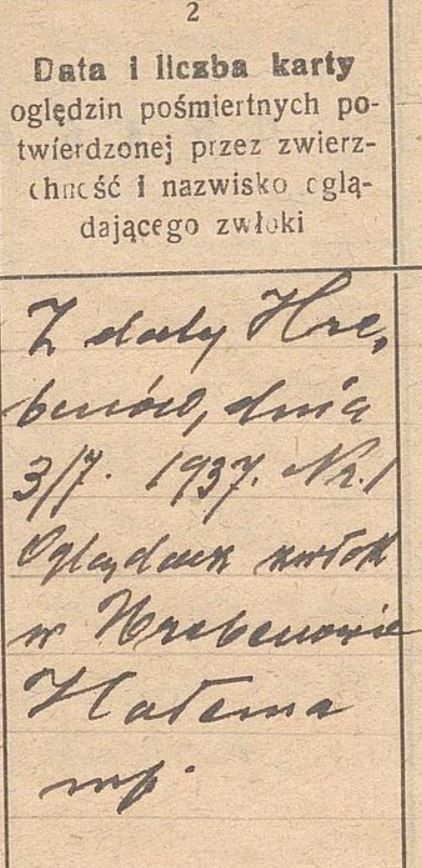 2
Data i liczba karty
oględzin pośmiertnych po-
twierdzonej przez zwierz-
chność i nazwisko oglą-
dającego zwłoki
Z daty Hre,
benów, dnia
3/7. 1937. Nr. 1
Oglądacz zwłok
w Hrebenowie
Hałema
mp.